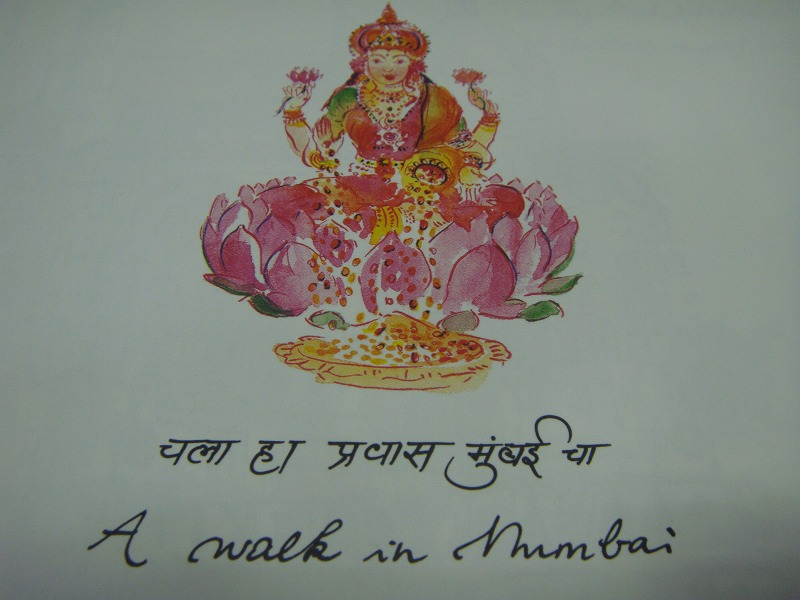 चला हा प्रवास मुंबई चा
A walk in Mumbai